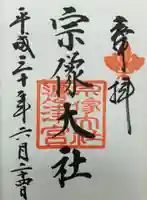 奉拝
宗像大社
平成三十年六月二十四日
宗像大社
邊津宮